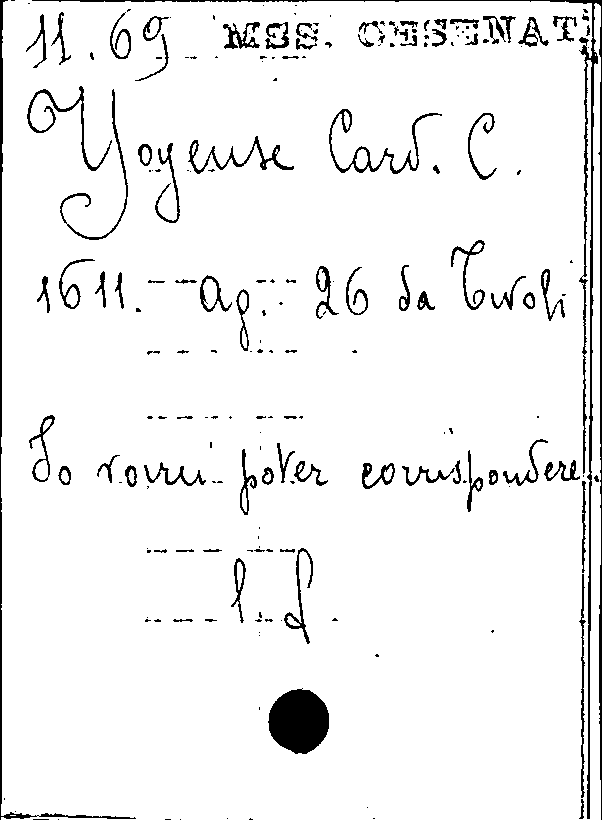 11.69 MSS. CESENAT
Yoyeuse Card. C.
1611. Ag. 26 da Tivoli
Io vorrei poter corrispondere
l. f.